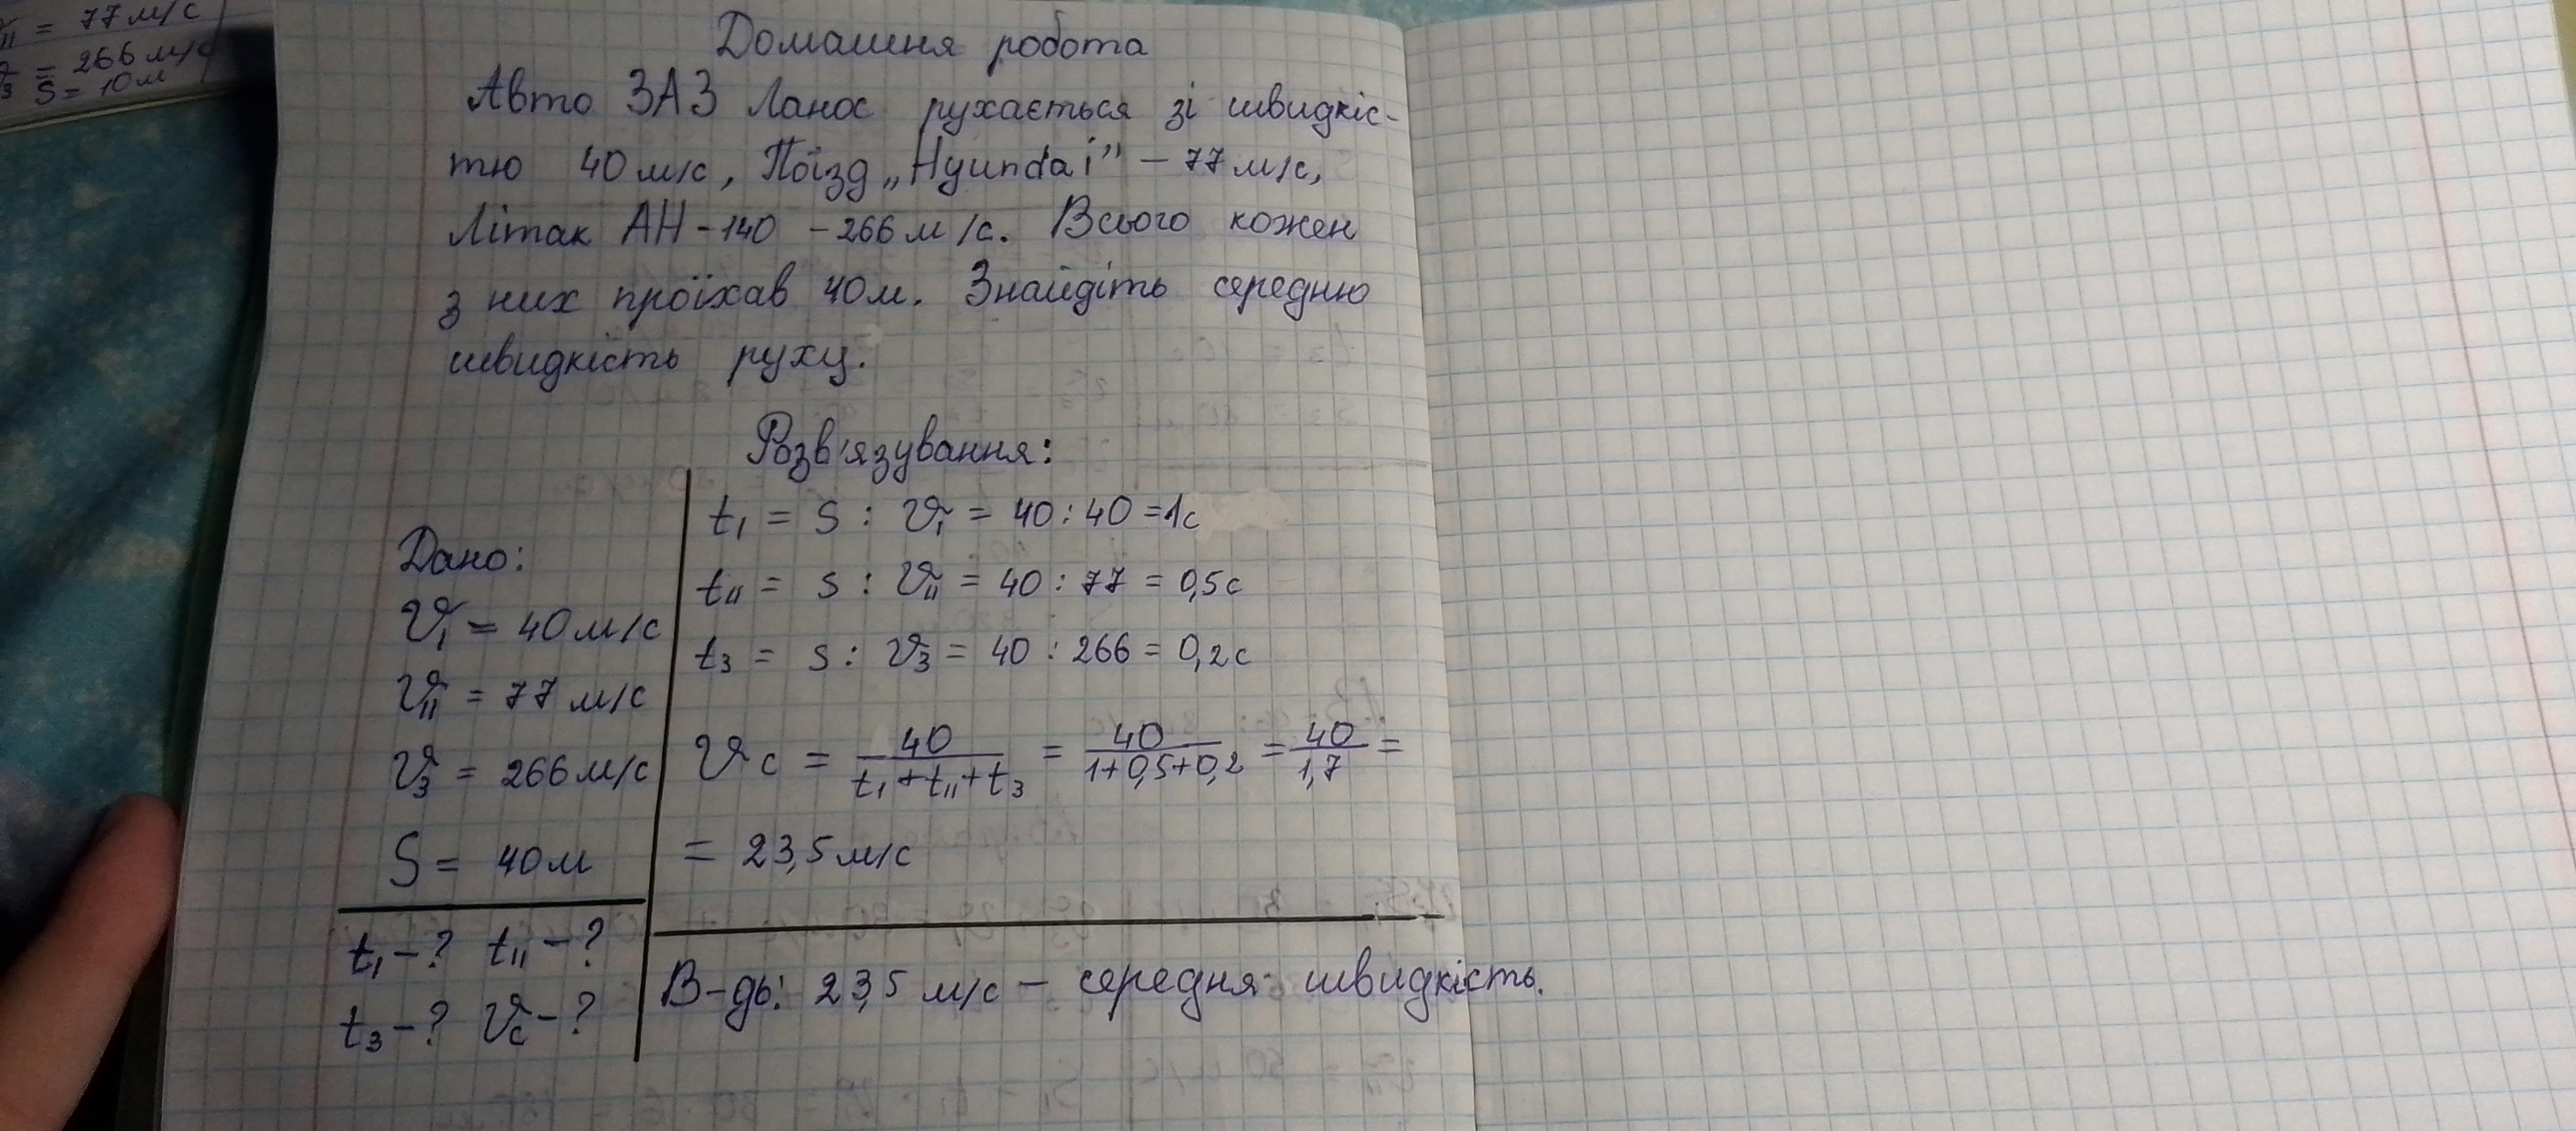 ᴗ₁₁ = 77 м/с
= 266 м/с
S = 10 м
Домашня робота
Авто ЗАЗ Ланос рухається зі швидкіс-
тю 40 м/с, Поїзд „Hyundai” – 77 м/с,
Літак АН-140 – 266 м/с. Всього кожен
з них проїхав 40м. Знайдіть середню
швидкість руху.
Розв'язування:
Дано:
V₁ = 40 м/с
V₁₁ = 77 м/с
V₃ = 266 м/с
S = 40 м
t₁ – ? t₁₁ – ?
t₃ – ? Vc – ?
t₁ = S : V₁ = 40 : 40 = 1с
t₁₁ = S : V₁₁ = 40 : 77 = 0,5с
t₃ = S : V₃ = 40 : 266 = 0,2с
Vc = 40/(t₁+t₁₁+t₃) = 40/(1+0,5+0,2) = 40/1,7 =
= 23,5 м/с
В-дь: 23,5 м/с – середня швидкість.